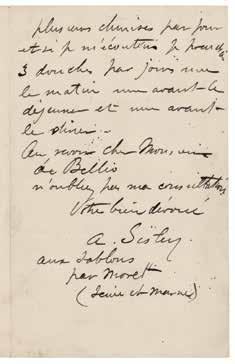 plusieurs chemises par jour
et si je m'écoutais je prendrais
3 douches par jour une
le matin une avant le
dejeuner et une avant
le diner.
Au revoir cher Monsieur
de Bellio
n'oubliez pas ma consultation
Votre bien dévoué
A. Sisley
aux Sablons
par Moret
(Seine et Marne)